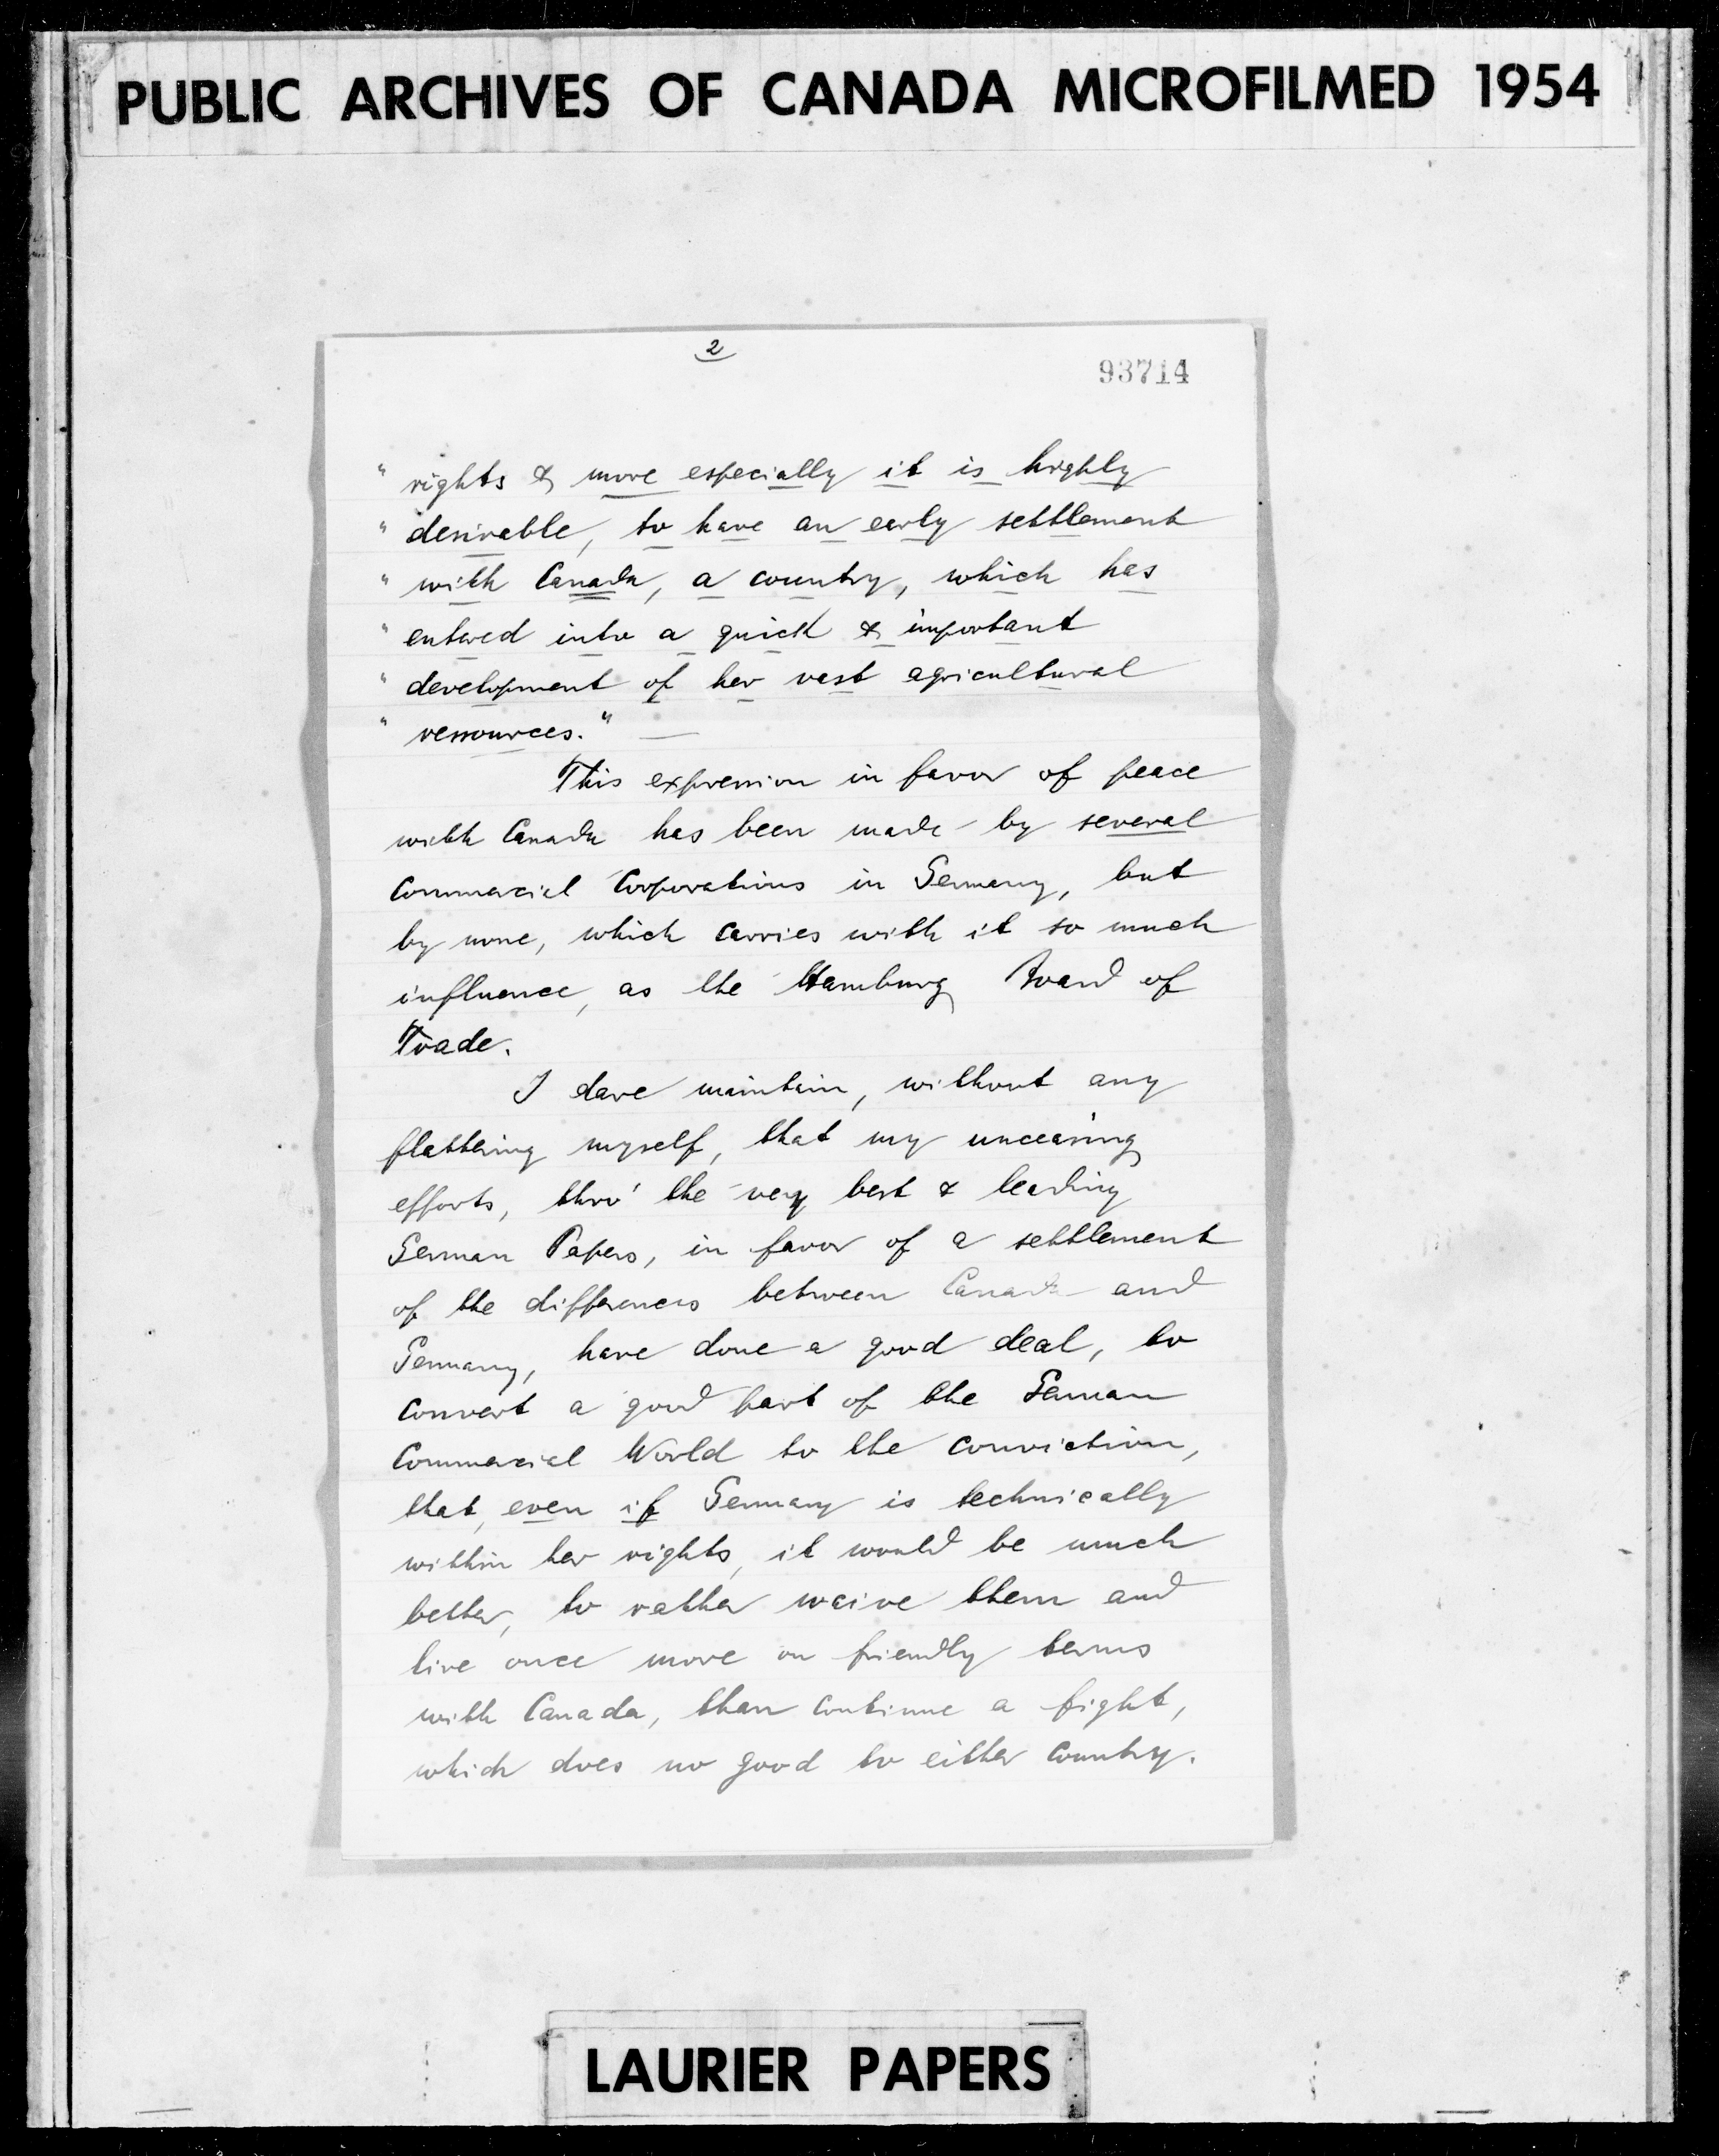 PUBLIC ARCHIVES OF CANADA MICROFILMED 1954
2
93714
" rights & more especially it is highly
" desirable, to have an early settlement
" with Canada, a country, which has
" entered into a quick & important
" development of her vast agricultural
" ressources." —
This expression in favor of peace
with Canada has been made by several
Commercial Corporations in Germany, but
by none, which carries with it so much
influence, as the Hamburg Board of
Trade.
I dare maintain, without any
flattering myself, that my unceasing
efforts, thro' the very best & leading
German Papers, in favor of a settlement
of the differences between Canada and
Germany, have done a good deal, to
convert a good part of the German
Commercial World to the conviction,
that, even if Germany is technically
within her rights, it would be much
better, to rather waive them and
live once more on friendly terms
with Canada, than continue a fight,
which does no good to either Country.
LAURIER PAPERS